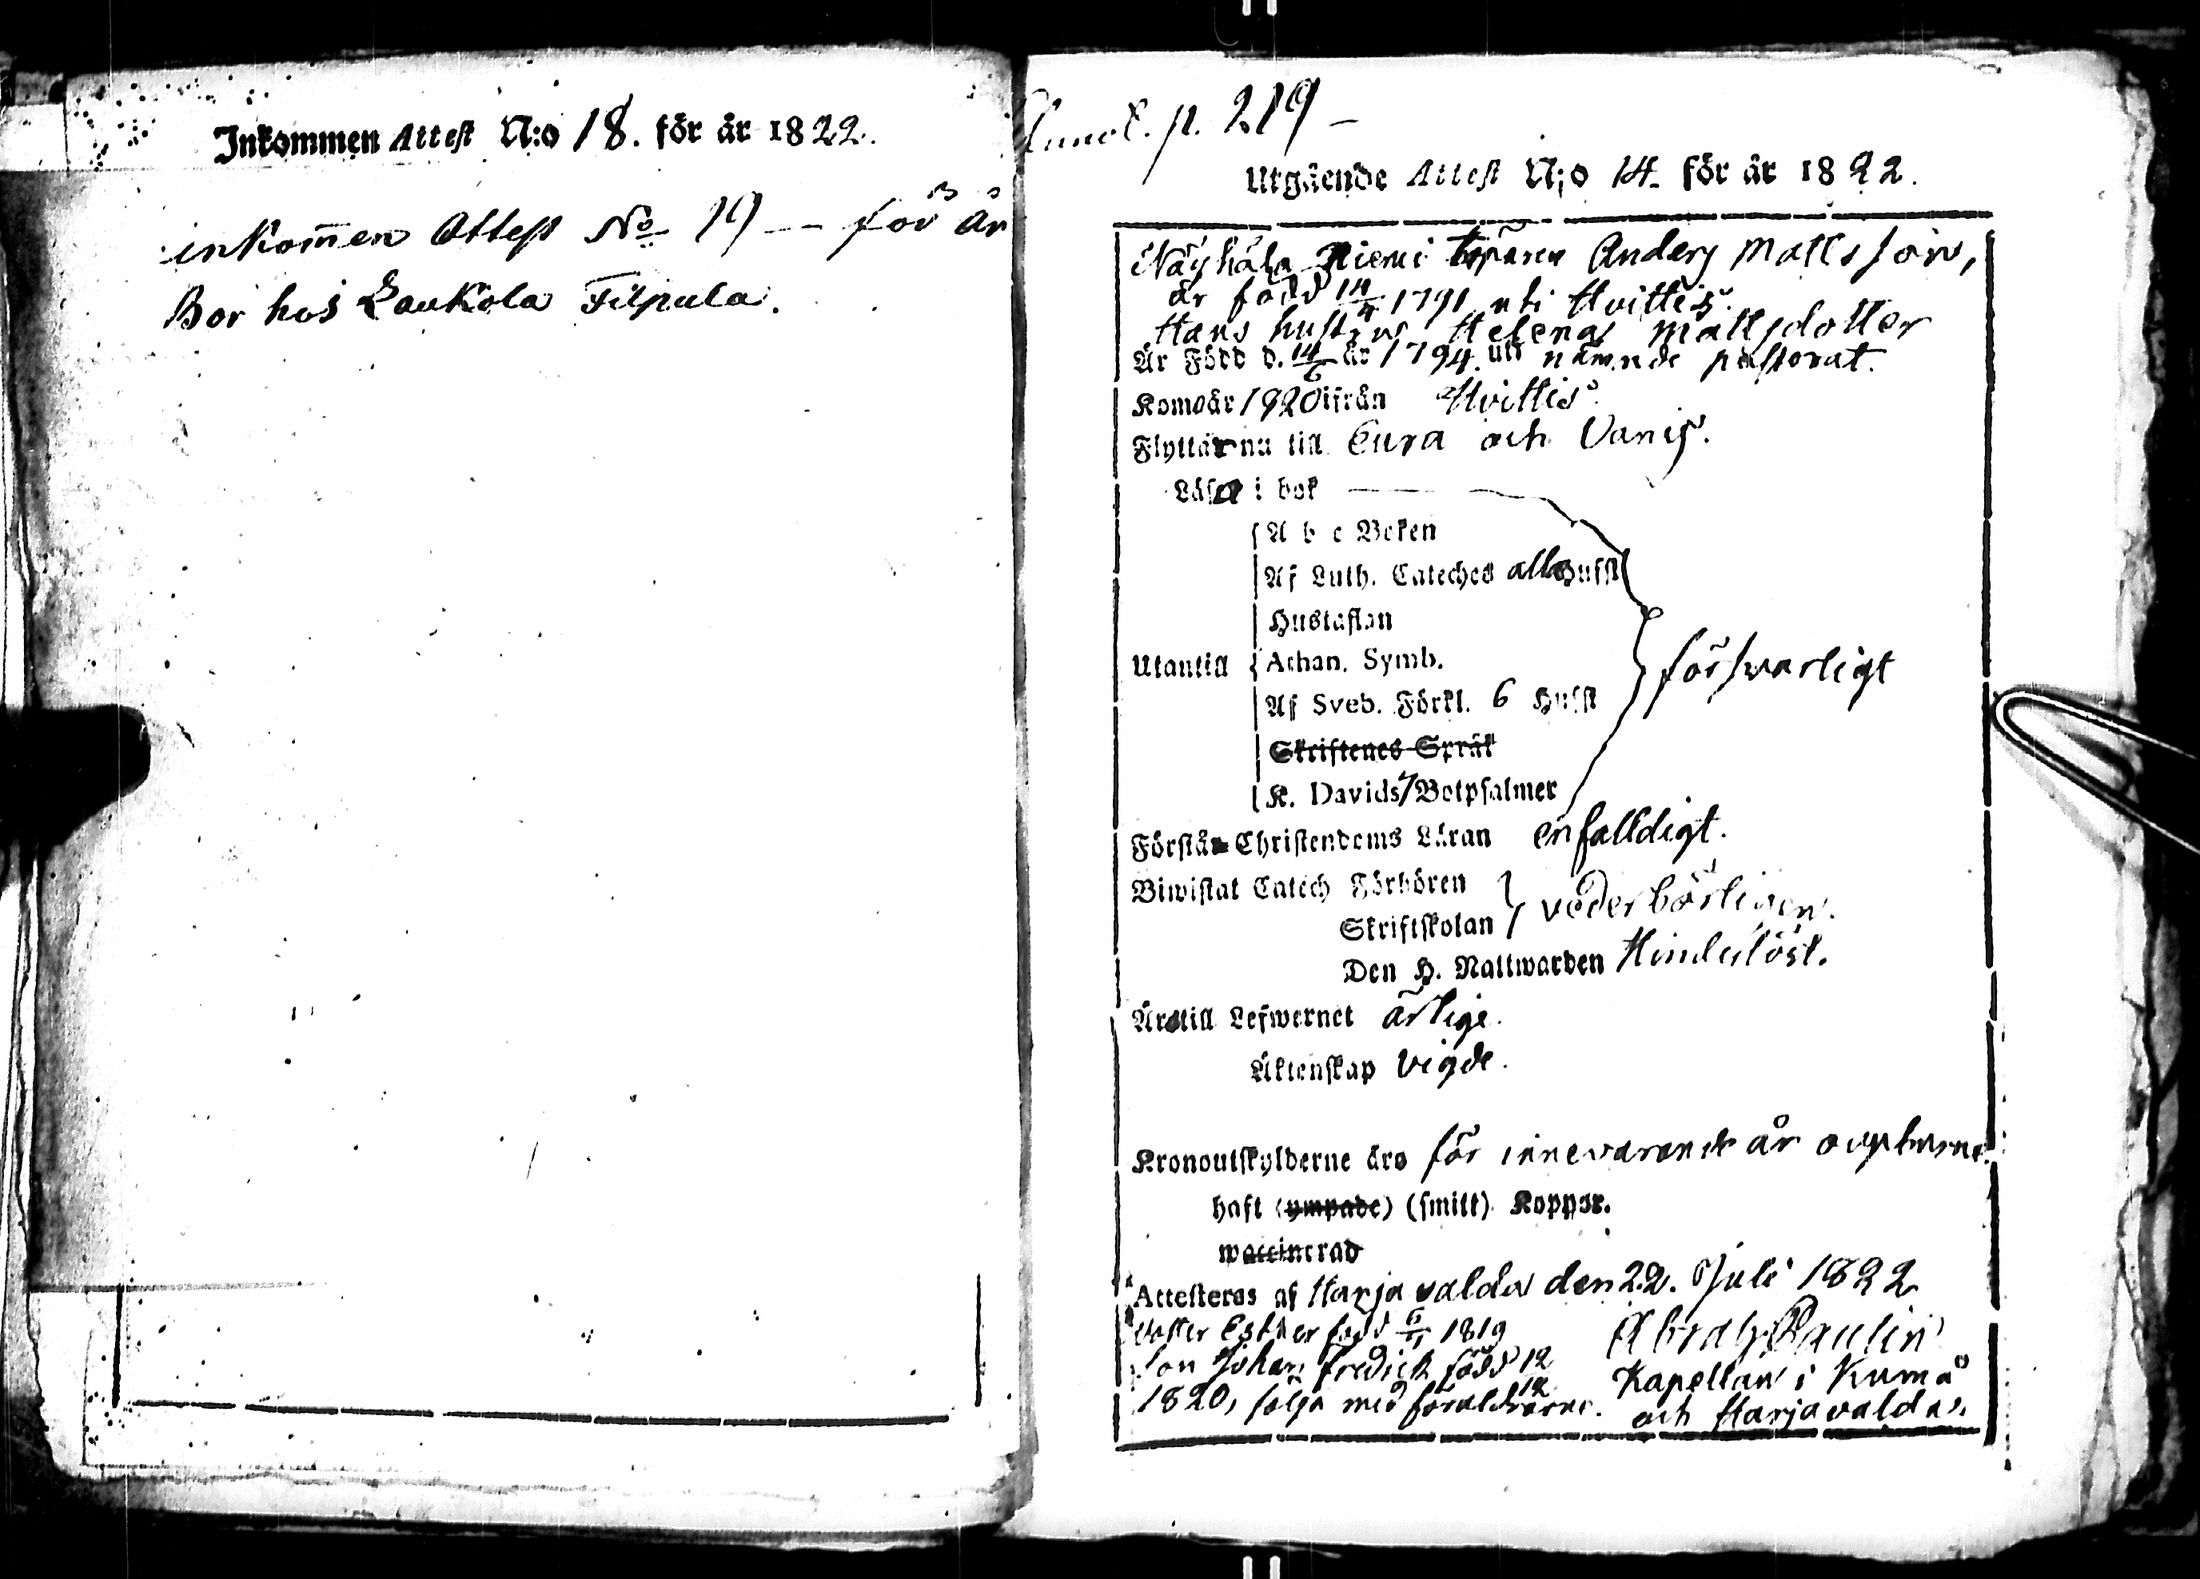 Inkommen Attest N:o 18. för år 1822.
inkomen Attest No 19 — för år
Bor hos Laukola Filpula.
p. 219 —
Utgående Attest N:o 14. för år 1822.
Niemi Anders Mattsson,
är född 1791 uti Hvittis.
Hans hustru Helena Mattsdotter
Är Född d. 14/6 år 1794. uti nämnde pastorat.
Kom år 1820 ifrån Hvittis.
Flyttar nu till Eura och Vanis.
Läsa i bok
A b c Boken
Af Luth. Cateches alla Hufst
Hustaflan
Utantill Athan. Symb. försvarligt
Af Sveb. Förkl. 6 Hufst
Skriftenes Språk
K. Davids 7 Botpsalmer
Förstå Christendoms Läran enfalldigt.
Biwistat Catech Förhören
Skriftskolan vederbörligen.
Den H. Nattwarden Hinderlöst.
Äro till Lefwernet ärlige.
Äktenskap vigde.
Kronoutskylderne äro för innevarande år
haft (ympade) (smitt) Koppor.
waccinerad
Attesteras af Harjavalda den 22. Juli 1822
dotter Esther född 1819 Abrah Paulin
son Johan Fredich född 12
1820, följa med föräldrarne. Kapellan i Kumå
och Harjavalda.